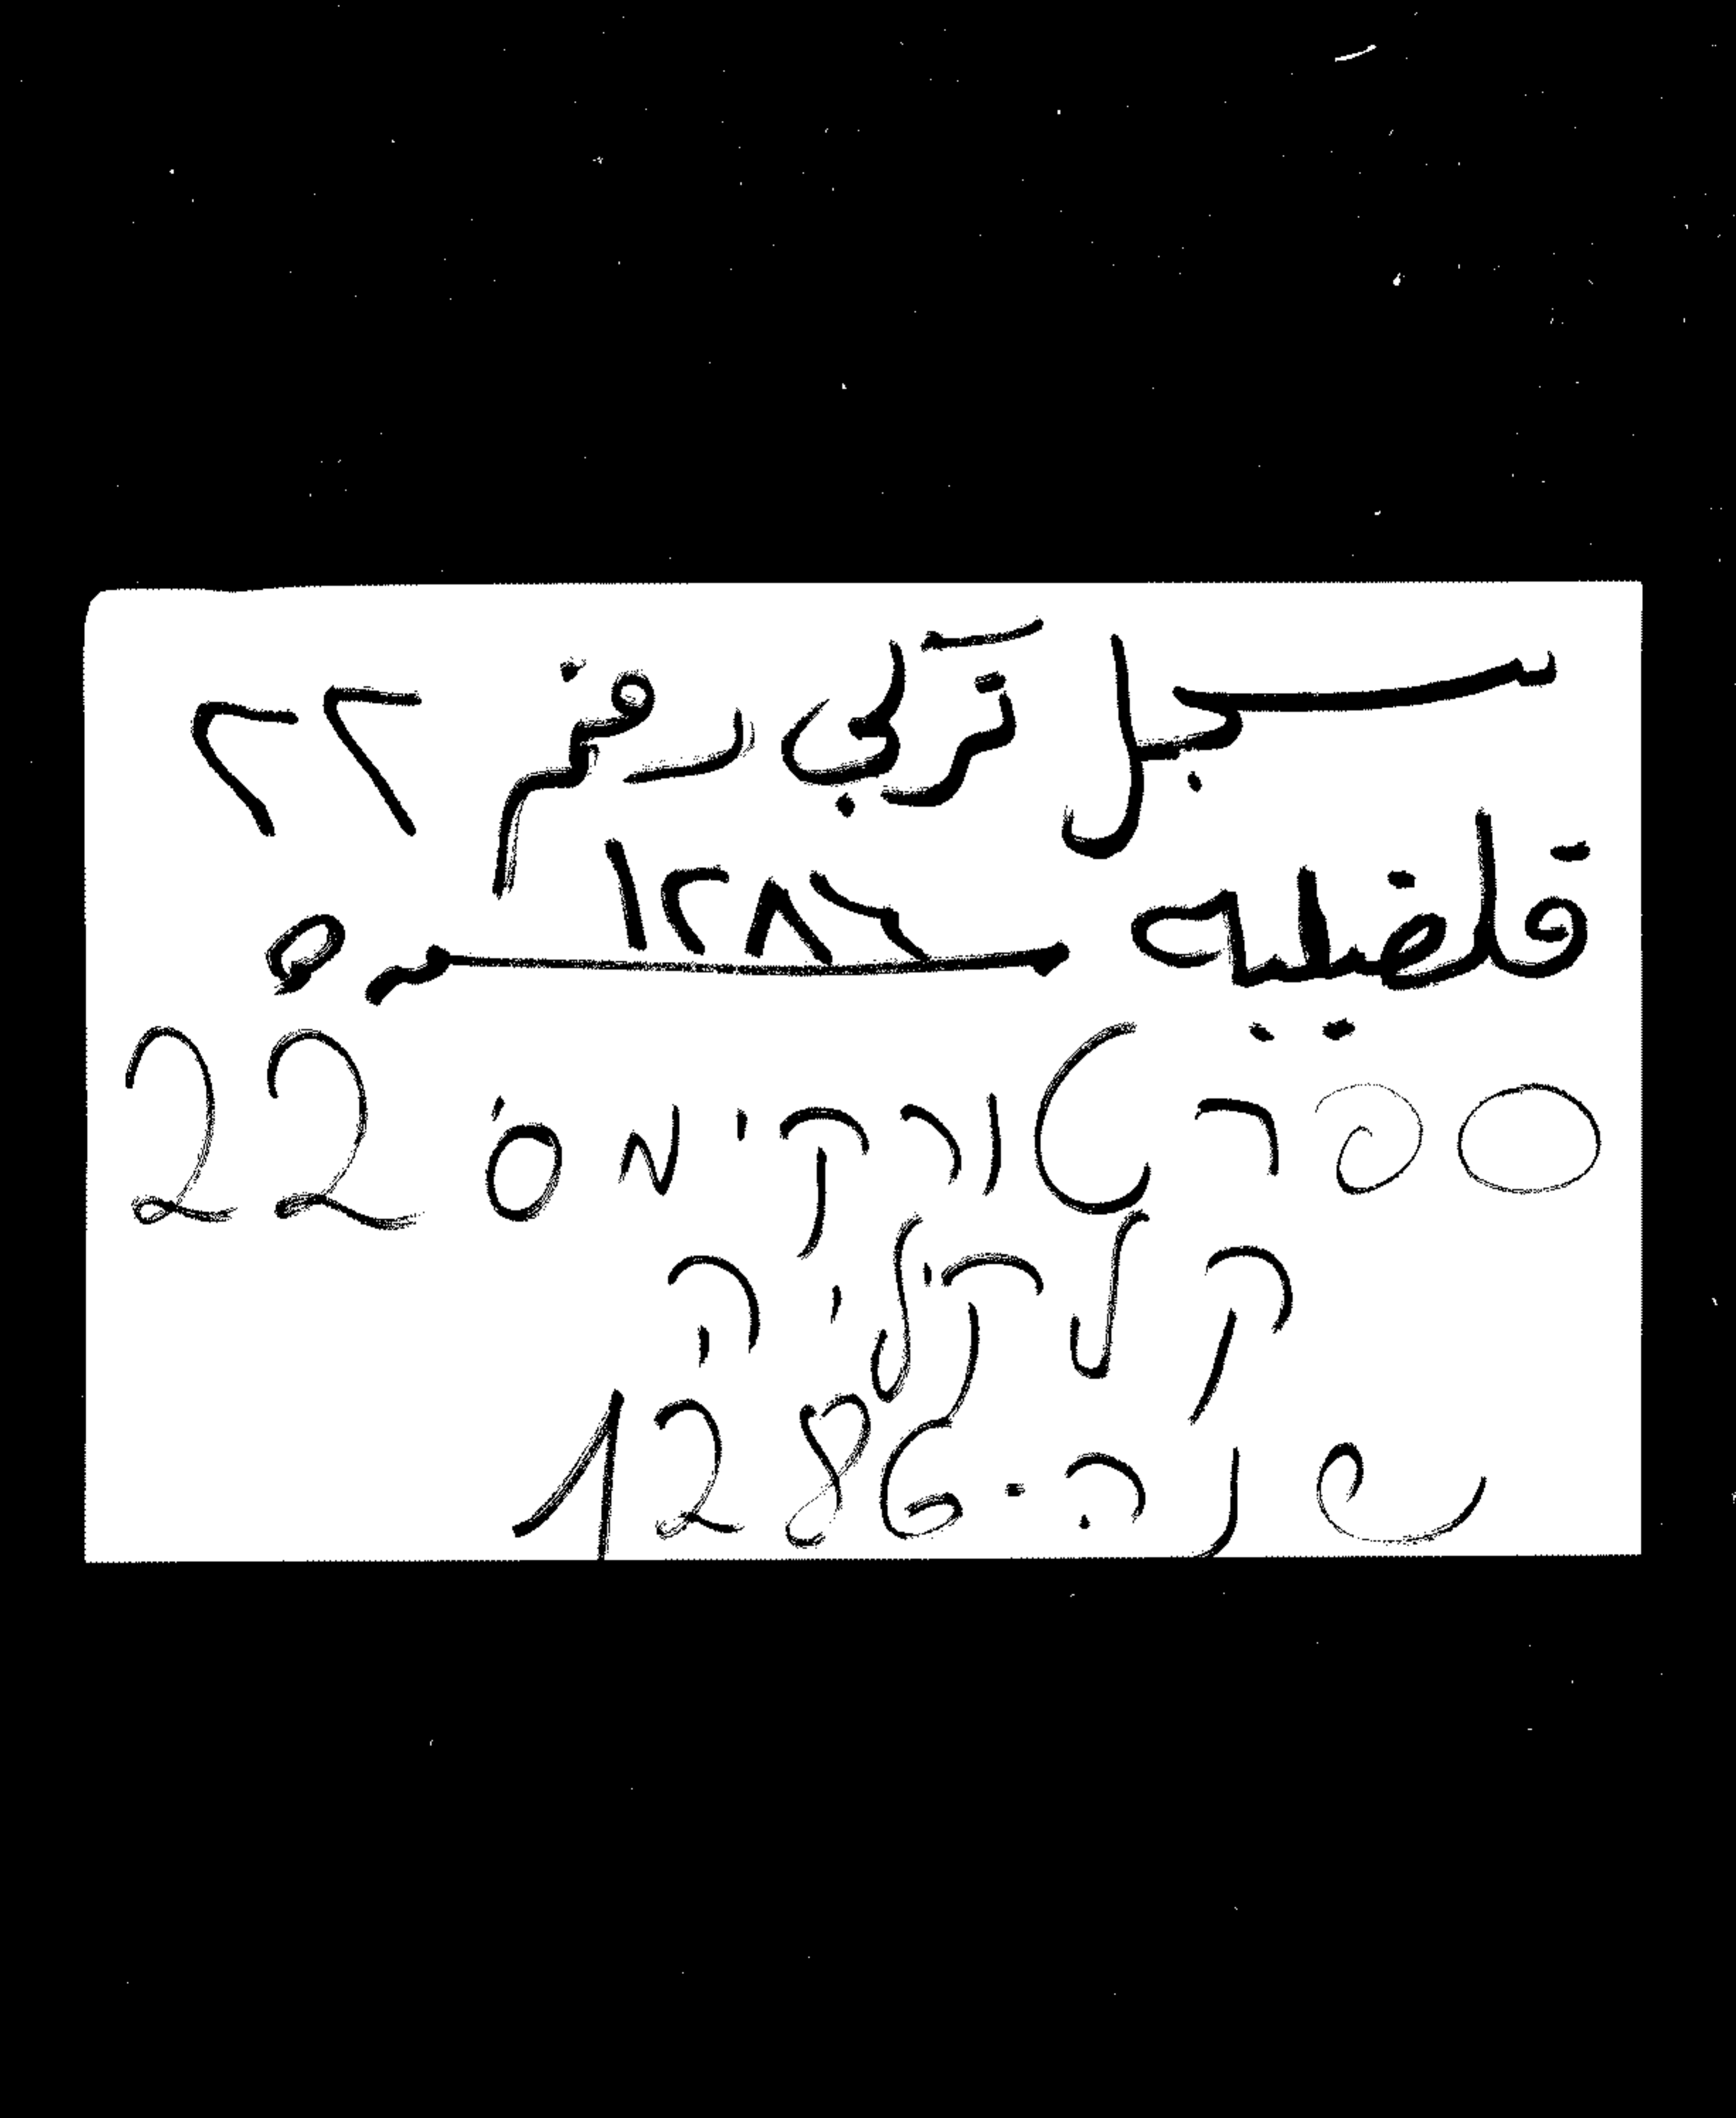 سجل تركي رقم ٢٢
قلقيليه سنة ١٢٨٦ ه
ספר טורקי מס' 22
קלקיליה
שנה. 1286